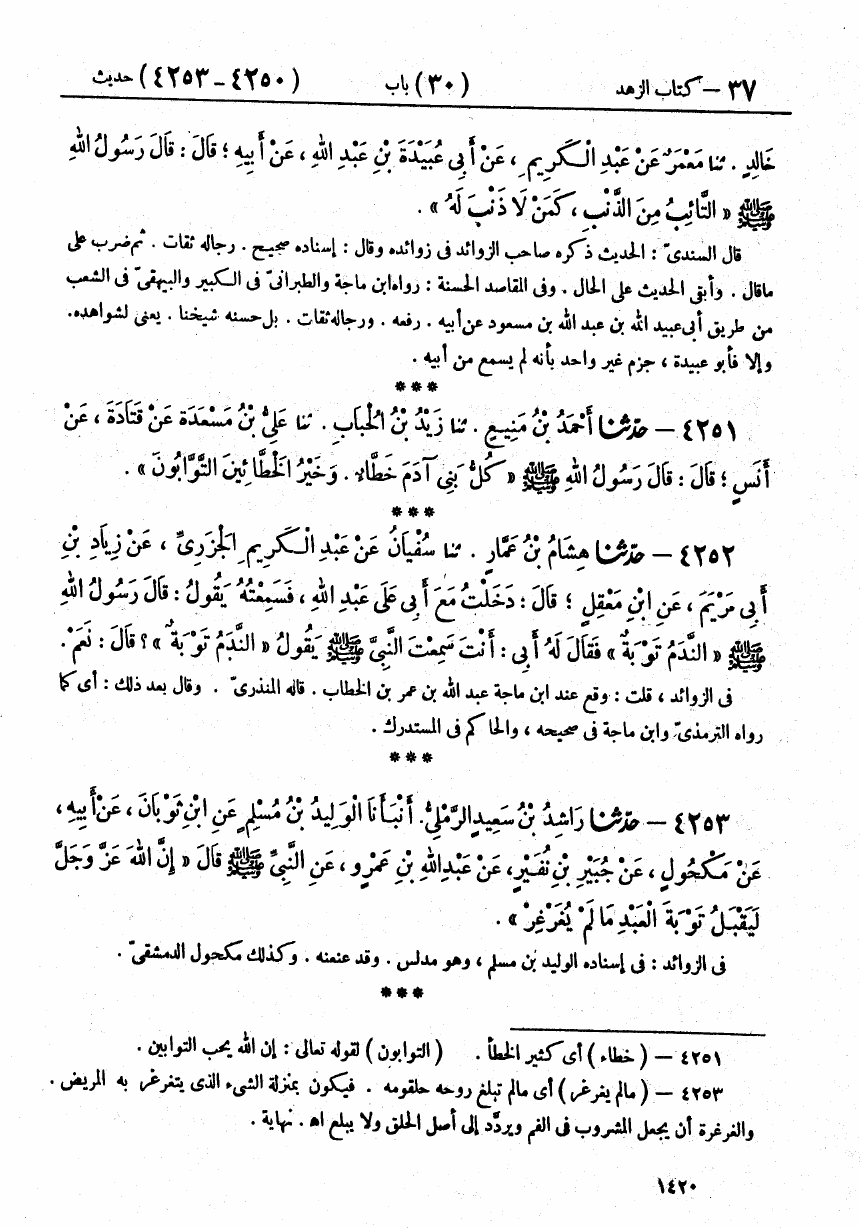 ٣٧ – كتاب الزهد (٣٠) باب (٤٢٥٠ – ٤٢٥٣) حديث
خَالِدٍ . ثنا مَعْمَرٌ عَنْ عَبْدِ الْكَرِيمِ ، عَنْ أَبِى عُبَيْدَةَ بْنِ عَبْدِ اللهِ ، عَنْ أَبِيهِ ؛ قَالَ : قَالَ رَسُولُ اللهِ
ﷺ « التَّائِبُ مِنَ الذَّنْبِ ، كَمَنْ لَا ذَنْبَ لَهُ » .
قال السندىّ : الحديث ذكره صاحب الزوائد فى زوائده وقال : إسناده صحيح . رجاله ثقات . ثم ضرب على
ماقال . وأبقى الحديث على الحال . وفى المقاصد الحسنة : رواه ابن ماجة والطبرانىّ فى الكبير والبيهقىّ فى الشعب
من طريق أبى عبيد الله بن عبد الله بن مسعود عن أبيه . رفعه . ورجاله ثقات . بل حسنه شيخنا . يعنى لشواهده.
وإلا فأبو عبيدة ، جزم غير واحد بأنه لم يسمع من أبيه .
***
٤٢٥١ – حدّثنا أَحْمَدُ بْنُ مَنِيعٍ . ثنا زَيْدُ بْنُ الْحُبَابِ . ثنا عَلِىُّ بْنُ مَسْعَدَةَ عَنْ قَتَادَةَ ، عَنْ
أَنَسٍ ؛ قَالَ : قَالَ رَسُولُ اللهِ ﷺ « كُلُّ بَنِى آدَمَ خَطَّاء . وَخَيْرُ الْخَطَّائِينَ التَّوَّابُونَ » .
***
٤٢٥٢ – حدّثنا هِشَامُ بْنُ عَمَّارٍ . ثنا سُفْيَانُ عَنْ عَبْدِ الْكَرِيمِ الْجَزَرِىِّ ، عَنْ زِيَادِ بْنِ
أَبِى مَرْيَمَ ، عَنِ ابْنِ مَعْقِلٍ ؛ قَالَ : دَخَلْتُ مَعَ أَبِى عَلَى عَبْدِ اللهِ ، فَسَمِعْتُهُ يَقُولُ : قَالَ رَسُولُ اللهِ
ﷺ « النَّدَمُ تَوْبَةٌ » فَقَالَ لَهُ أَبِى : أَنْتَ سَمِعْتَ النَّبِىَّ ﷺ يَقُولُ « النَّدَمُ تَوْبَةٌ » ؟ قَالَ : نَعَمْ .
فى الزوائد ، قلت : وقع عند ابن ماجة عبد الله بن عمر بن الخطاب . قاله المنذرىّ . وقال بعد ذلك : أى كما
رواه الترمذىّ وابن ماجة فى صحيحه ، والحاكم فى المستدرك .
***
٤٢٥٣ – حدّثنا رَاشِدُ بْنُ سَعِيدٍ الرَّمْلِىُّ. أَنْبَأَنَا الْوَلِيدُ بْنُ مُسْلِمٍ عَنِ ابْنِ ثَوْبَانَ ، عَنْ أَبِيهِ ،
عَنْ مَكْحُولٍ ، عَنْ جُبَيْرِ بْنِ نُفَيْرٍ، عَنْ عَبْدِ اللهِ بْنِ عَمْرٍو ، عَنِ النَّبِىِّ ﷺ قَالَ « إِنَّ اللهَ عَزَّ وَجَلَّ
لَيَقْبَلُ تَوْبَةَ الْعَبْدِ مَا لَمْ يُغَرْغِرْ » .
فى الزوائد : فى إسناده الوليد بن مسلم ، وهو مدلس . وقد عنعنه . وكذلك مكحول الدمشقىّ .
***
٤٢٥١ – ( خطاء ) أى كثير الخطأ . ( التوابون ) لقوله تعالى : إن الله يحب التوابين .
٤٢٥٣ – ( مالم يغرغر ) أى مالم تبلغ روحه حلقومه . فيكون بمنزلة الشىء الذى يتغرغر به المريض .
والغرغرة أن يجعل المشروب فى الفم ويردَّد إلى أصل الحلق ولا يبلع اه . نهاية .
١٤٢٠